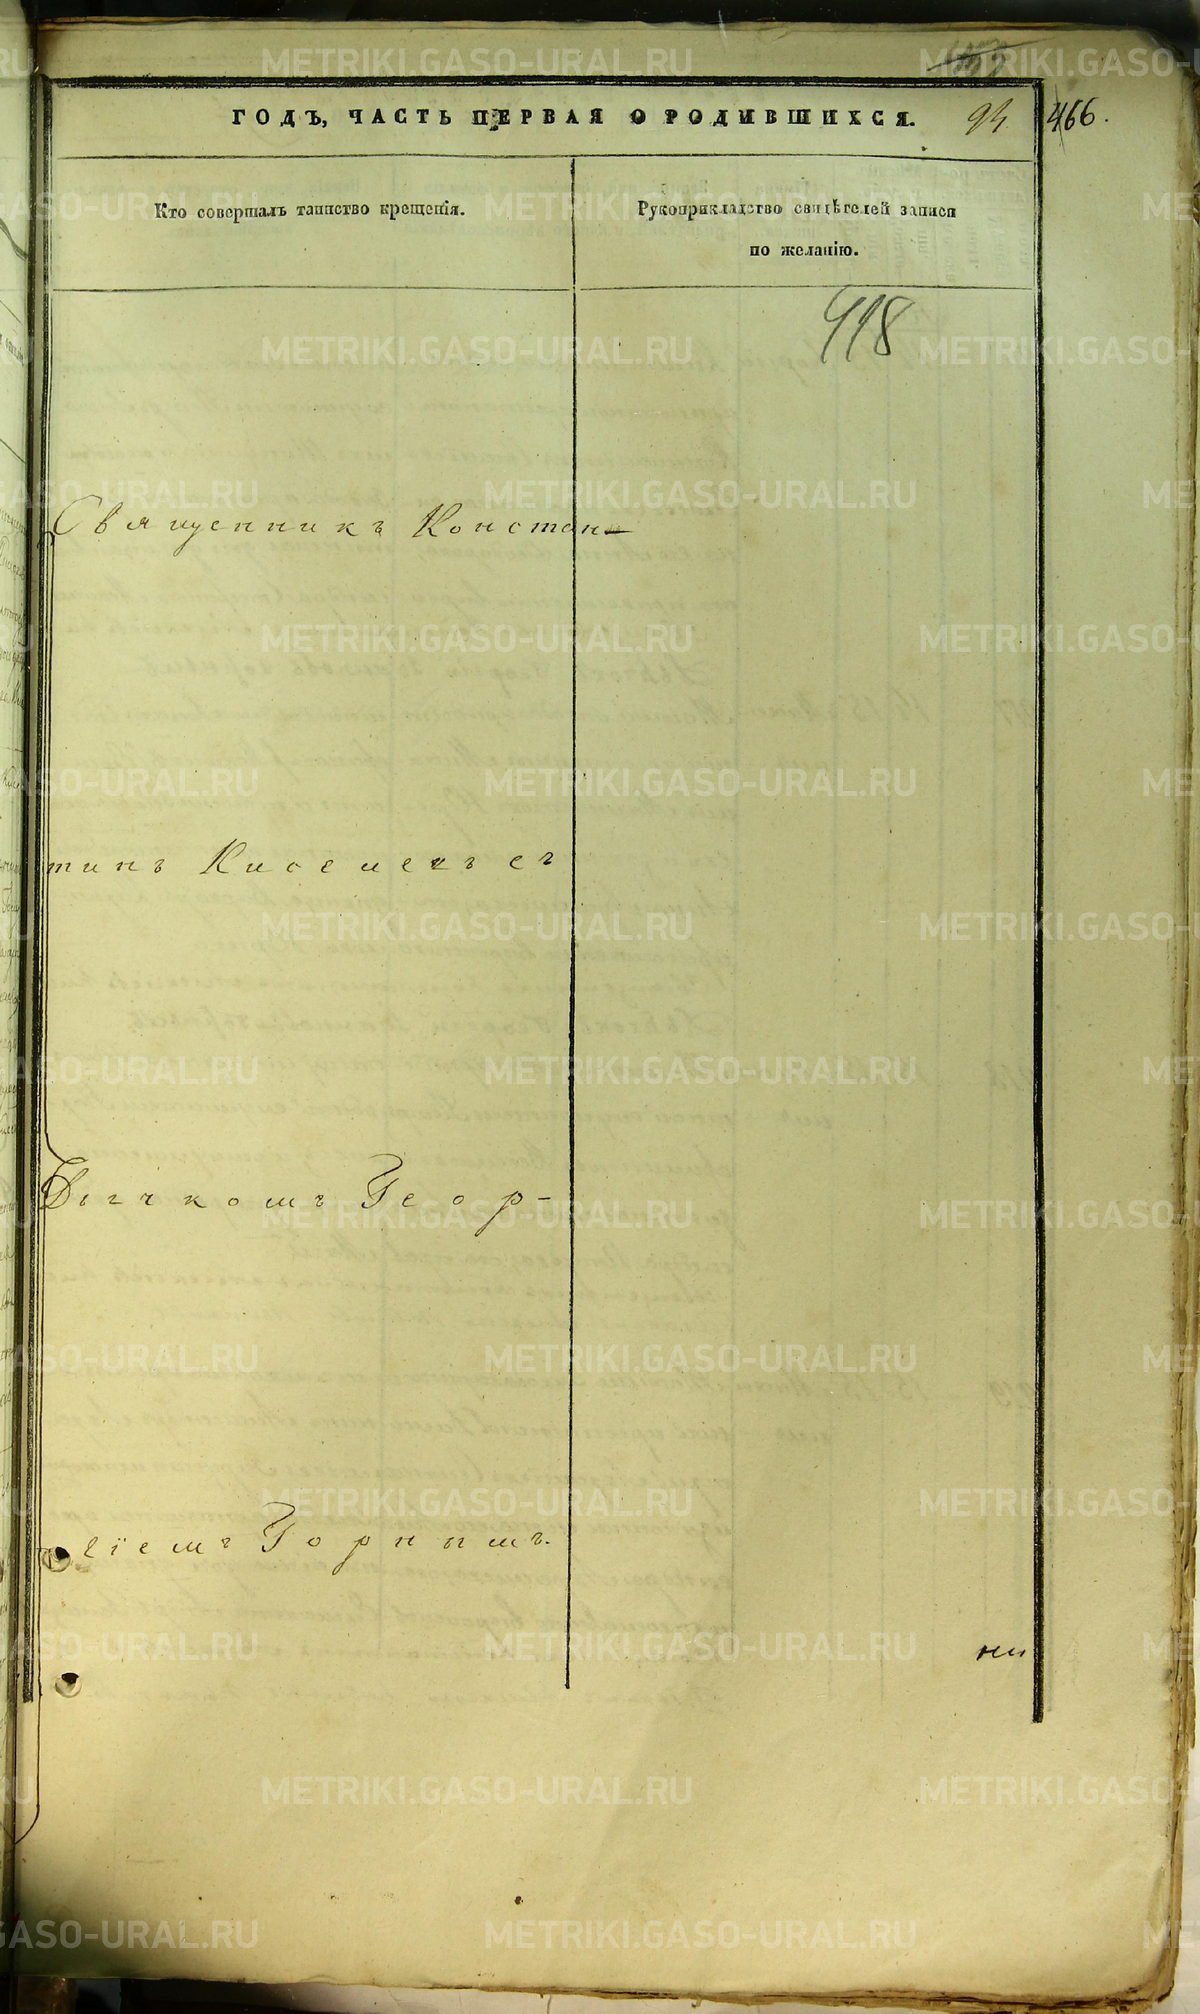 ГОДЪ, ЧАСТЬ ПЕРВАЯ О РОДИВШИХСЯ. 94 466.
Кто совершалъ таинство крещенія.
Рукоприкладство свидѣтелей записи
по желанію.
418
Священникъ Констан-
тинъ Киселевъ съ
Дьячкомъ Геор-
гіемъ Горнымъ.
ни
METRIKI.GASO-URAL.RU